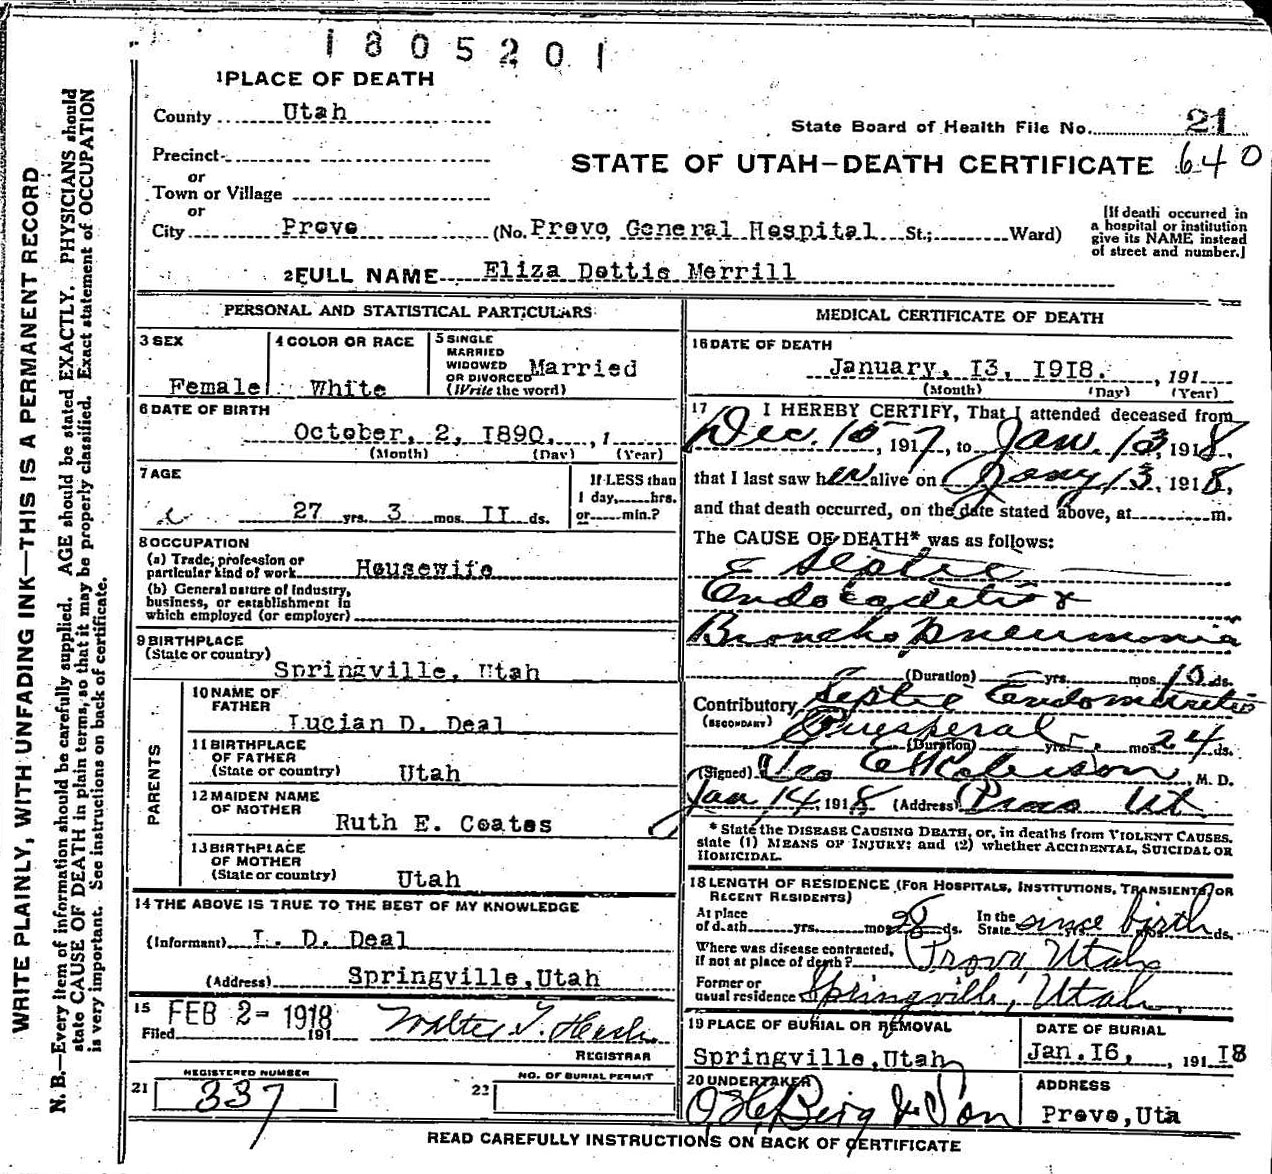 1805201
1 PLACE OF DEATH
County Utah
State Board of Health File No. 21
Precinct
STATE OF UTAH—DEATH CERTIFICATE 640
or
Town or Village
or
City Provo (No. Provo General Hospital St.; Ward)
[If death occurred in a hospital or institution give its NAME instead of street and number.]
2 FULL NAME Eliza Dottie Merrill
PERSONAL AND STATISTICAL PARTICULARS
3 SEX
Female
4 COLOR OR RACE
White
5 SINGLE
MARRIED
WIDOWED
OR DIVORCED
(Write the word)
Married
6 DATE OF BIRTH
October, 2, 1890. , 1
(Month) (Day) (Year)
7 AGE
27 yrs. 3 mos. II ds.
If LESS than
1 day, hrs.
or min.?
8 OCCUPATION
(a) Trade, profession or
particular kind of work Housewife
(b) General nature of industry,
business, or establishment in
which employed (or employer)
9 BIRTHPLACE
(State or country)
Springville, Utah
PARENTS
10 NAME OF
FATHER
Lucian D. Deal
11 BIRTHPLACE
OF FATHER
(State or country) Utah
12 MAIDEN NAME
OF MOTHER
Ruth E. Coates
13 BIRTHPLACE
OF MOTHER
(State or country) Utah
14 THE ABOVE IS TRUE TO THE BEST OF MY KNOWLEDGE
(Informant) L. D. Deal
(Address) Springville, Utah
15 FEB 2- 1918
Filed 191 Walter T.
REGISTRAR
REGISTERED NUMBER
21 337
NO. OF BURIAL PERMIT
22
MEDICAL CERTIFICATE OF DEATH
16 DATE OF DEATH
January, I3, I9I8. , 191
(Month) (Day) (Year)
17 I HEREBY CERTIFY, That I attended deceased from
Dec. 1917, to Jan. 13 1918,
that I last saw her alive on Jany 13, 1918,
and that death occurred, on the date stated above, at m.
The CAUSE OF DEATH* was as follows:
Septic
Endocarditis &
Broncho pneumonia
(Duration) yrs. mos. 10 ds.
Contributory Septic Endometritis
(SECONDARY) Puerperal
(Duration) yrs. mos. 24 ds.
(Signed) Geo E Robison, M. D.
Jan 14 1918 (Address) Provo Ut
* State the DISEASE CAUSING DEATH, or, in deaths from VIOLENT CAUSES,
state (1) MEANS OF INJURY; and (2) whether ACCIDENTAL, SUICIDAL OR
HOMICIDAL.
18 LENGTH OF RESIDENCE (FOR HOSPITALS, INSTITUTIONS, TRANSIENTS, OR
RECENT RESIDENTS)
At place
of death yrs. mos. 28 ds. In the
State since birth ds.
Where was disease contracted,
if not at place of death? Provo, Utah
Former or
usual residence Springville, Utah
19 PLACE OF BURIAL OR REMOVAL
Springville, Utah
DATE OF BURIAL
Jan. I6, 191 I8
20 UNDERTAKER
O. H. Berg & Son
ADDRESS
Provo, Uta
READ CAREFULLY INSTRUCTIONS ON BACK OF CERTIFICATE
WRITE PLAINLY, WITH UNFADING INK—THIS IS A PERMANENT RECORD
N. B.—Every item of information should be carefully supplied. AGE should be stated EXACTLY. PHYSICIANS should
state CAUSE OF DEATH in plain terms, so that it may be properly classified. Exact statement of OCCUPATION
is very important. See instructions on back of certificate.